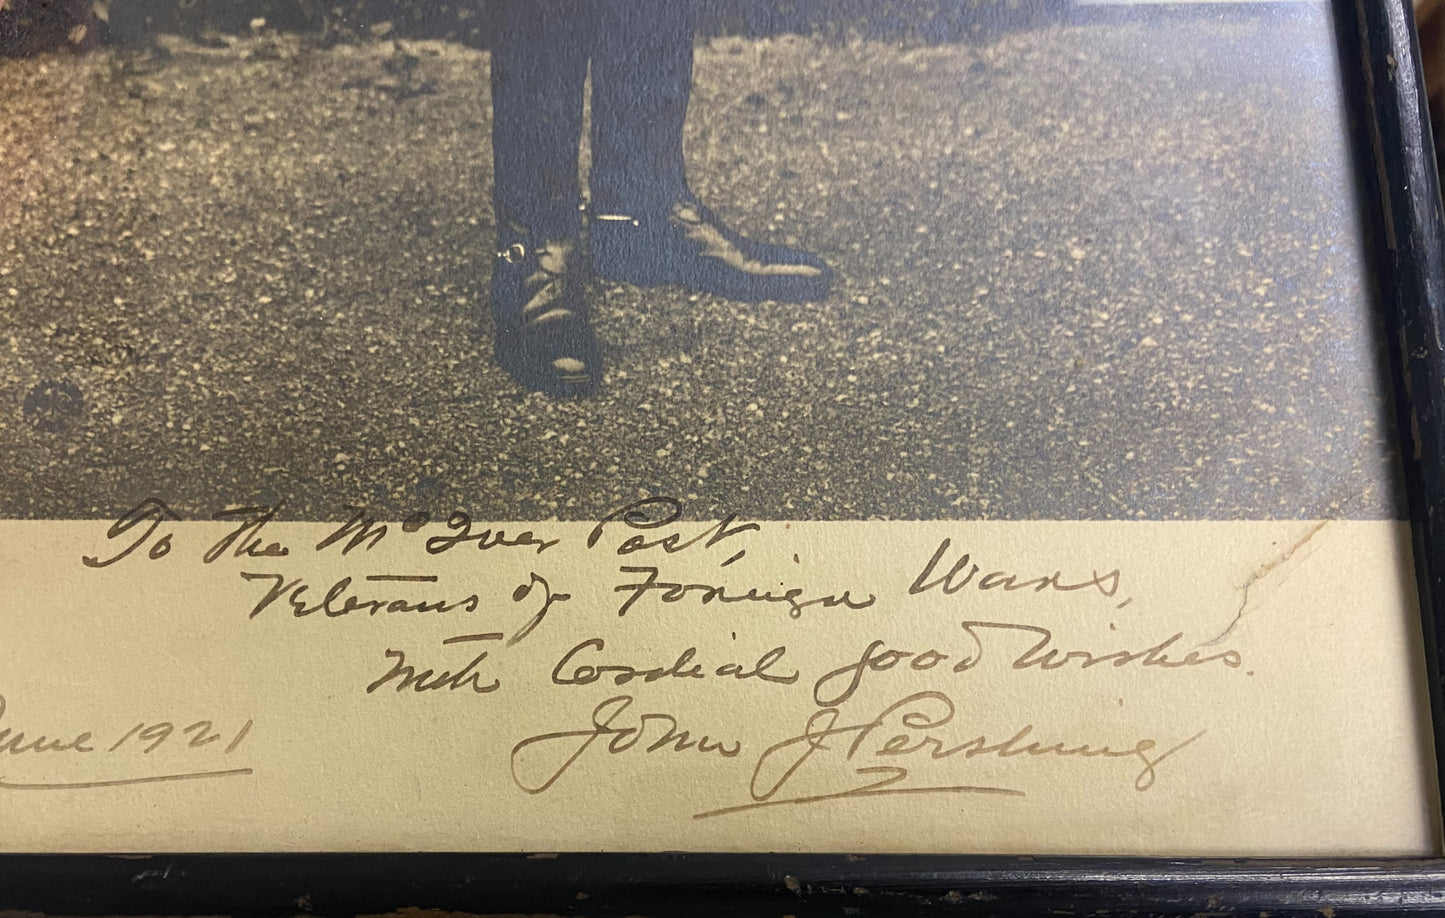 To the McIver Post,
Veterans of Foreign Wars,
With Cordial good wishes.
John J Pershing
June 1921